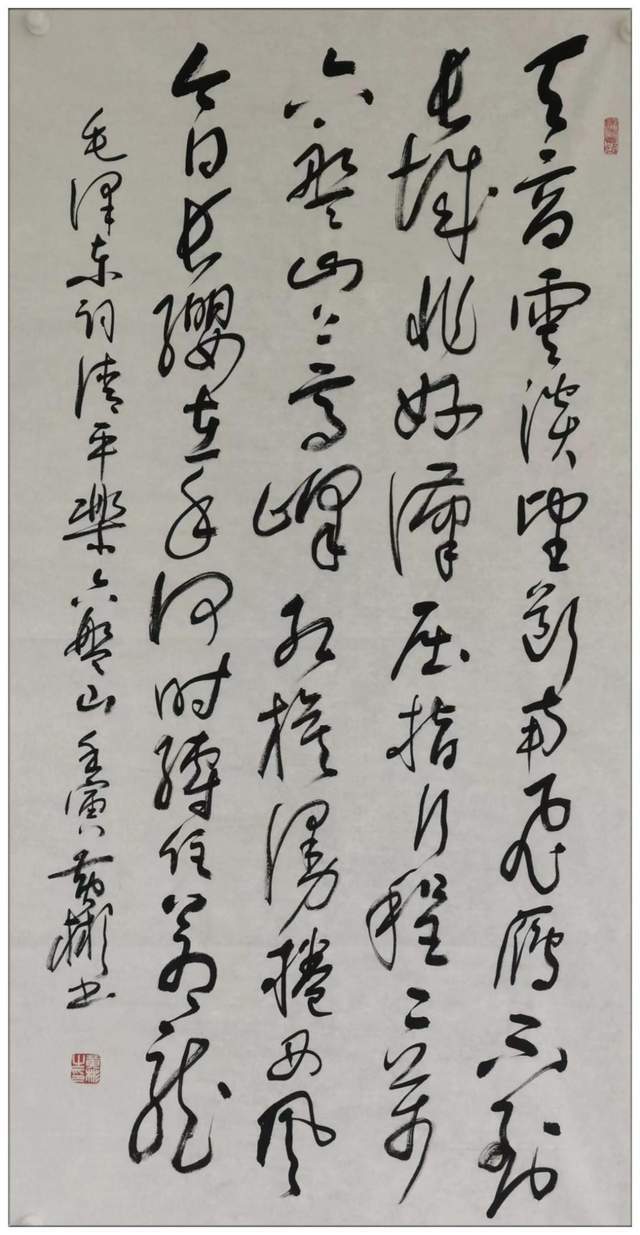 天高雲淡望斷南飛雁不到
長城非好漢屈指行程二萬
六盤山上高峰紅旗漫捲西風
今日長纓在手何時縛住蒼龍
毛澤東詞清平樂六盤山壬寅黄彬書